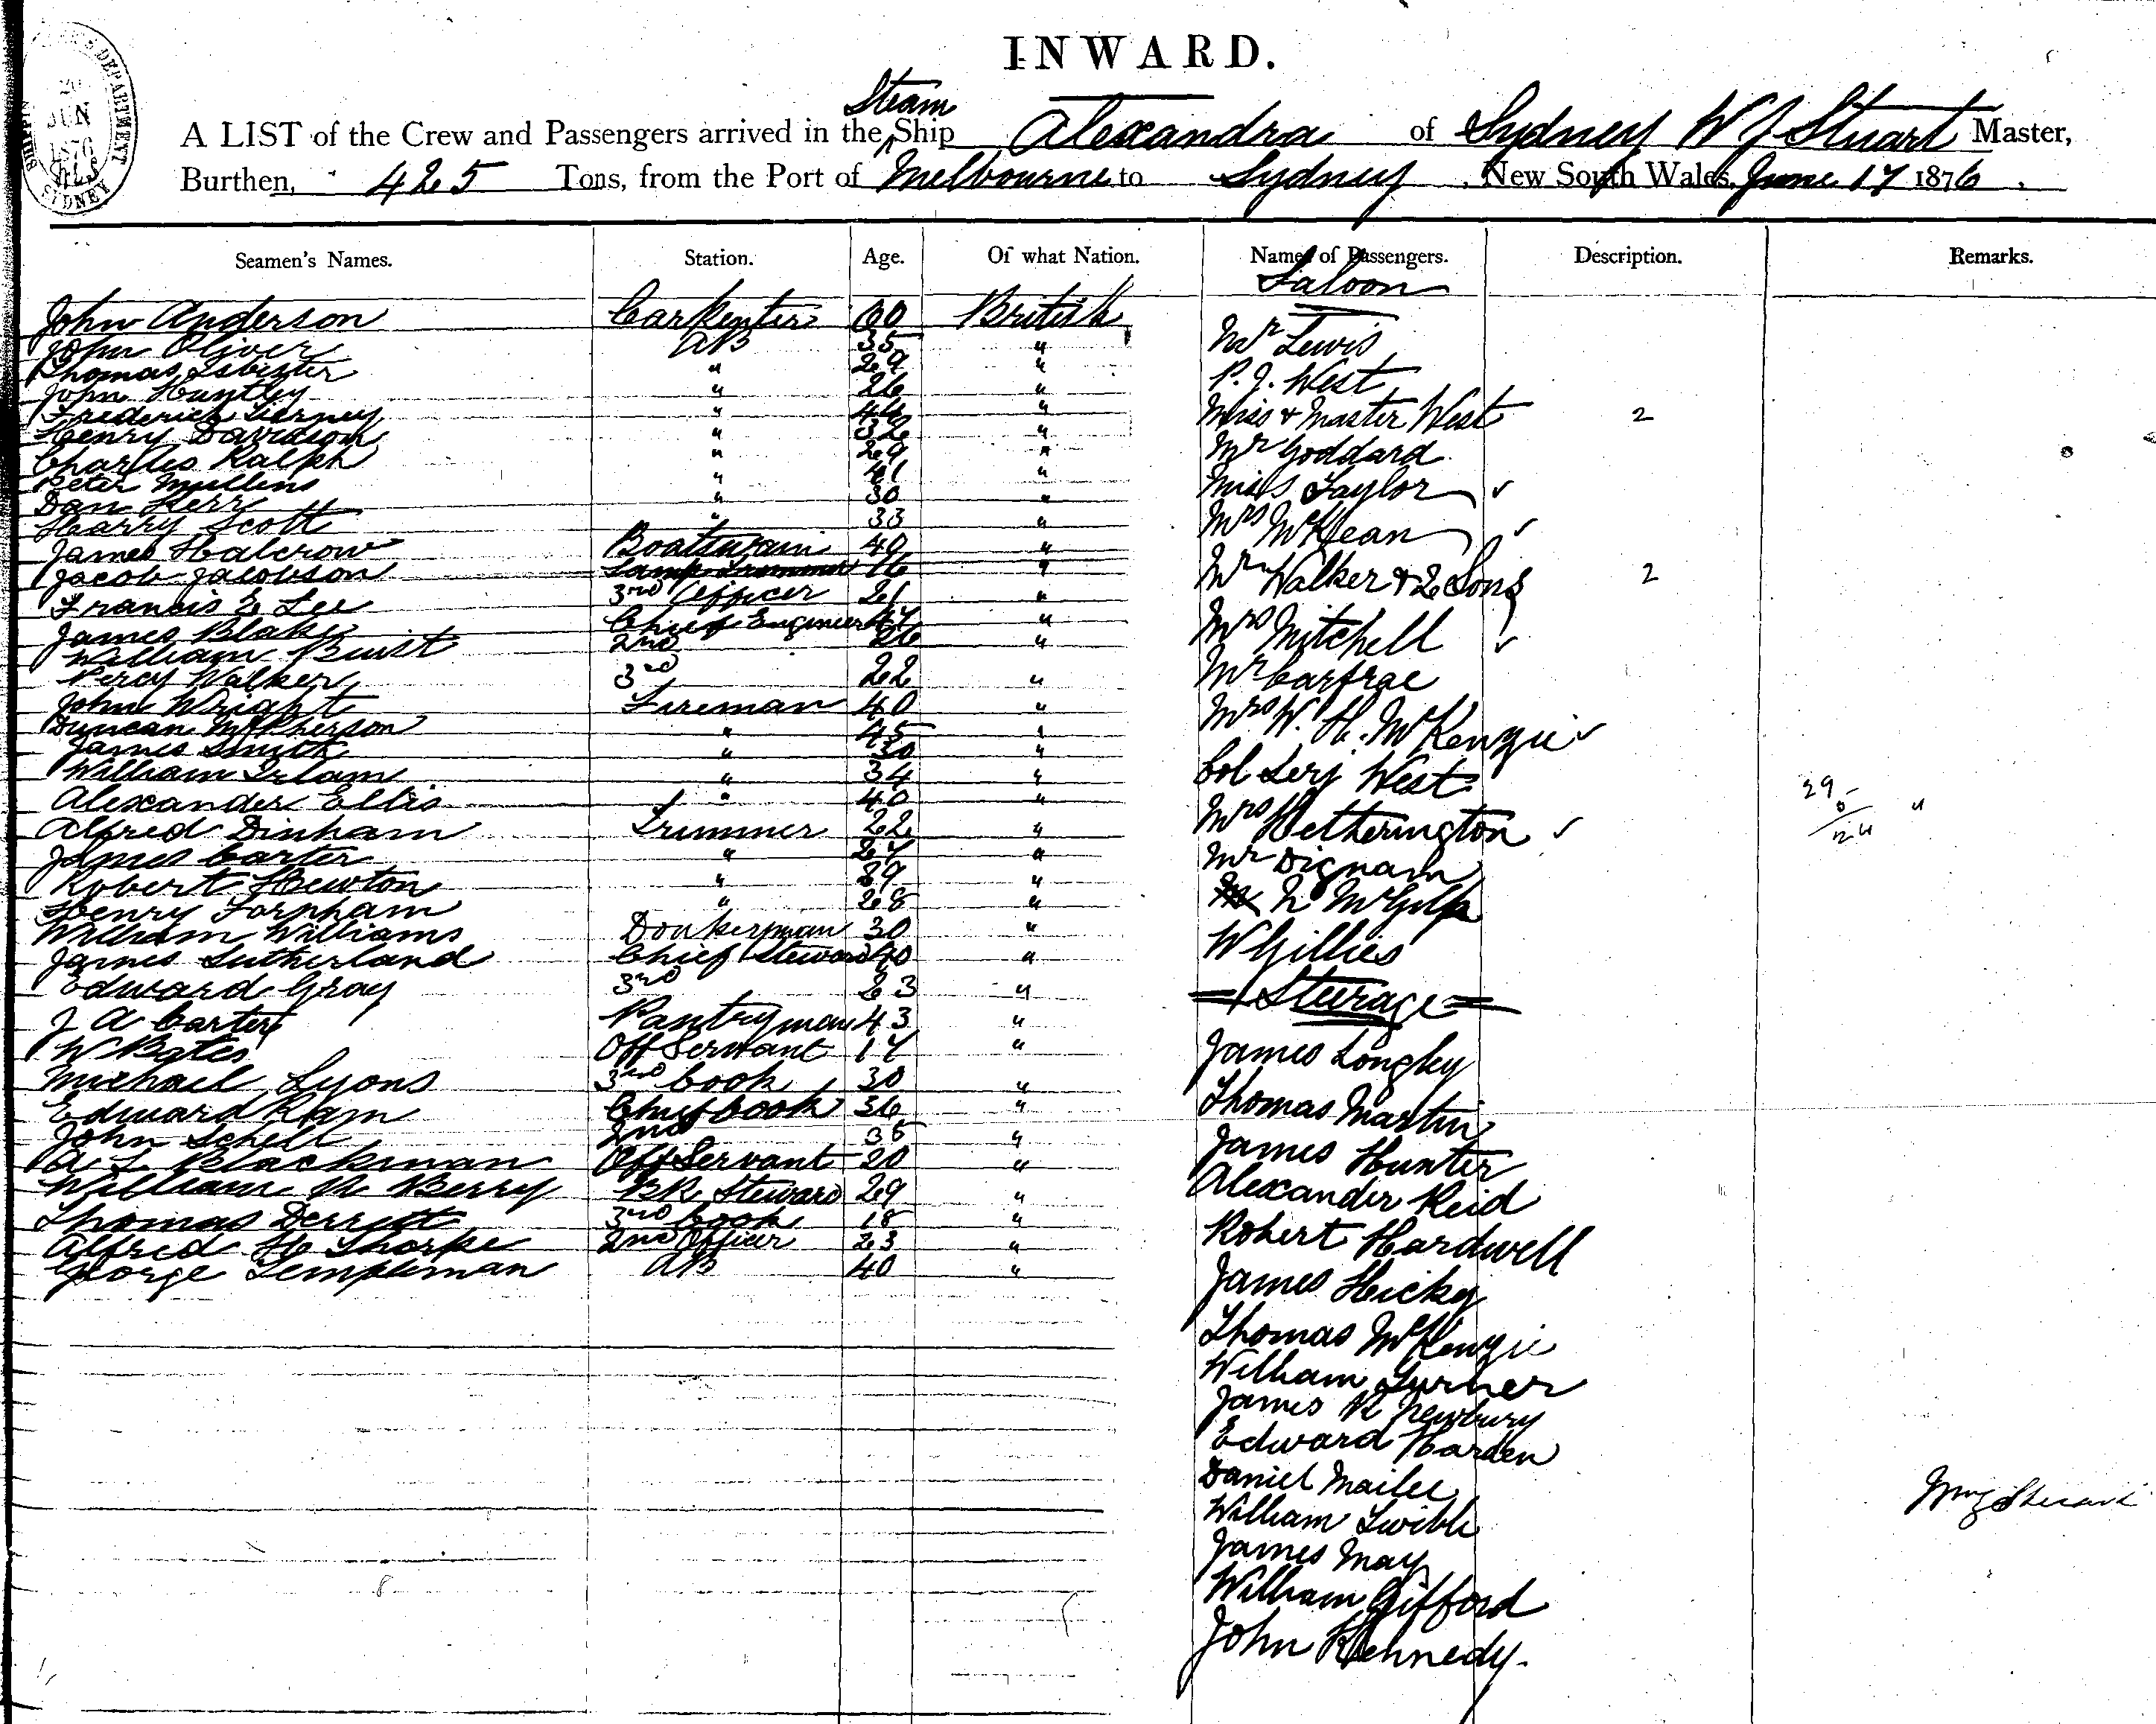 INWARD.
Steam
A LIST of the Crew and Passengers arrived in the Ship Alexandra of Sydney W J Stuart Master,
Burthen, 425 Tons, from the Port of Melbourne to Sydney, New South Wales, June 17 1876.
DEPARTMENT
JUN
1876
SYDNEY
Seamen's Names. Station. Age. Of what Nation. Names of Passengers. Description. Remarks.
Saloon
John Anderson Carpenter 60 British
John Oliver AB 35 "
Thomas Isbister " 29 "
John Huntley " 26 "
Frederick Tierney " 44 "
Henry Davidson " 32 "
Charles Ralph " 29 "
Peter Mullins " 41 "
Dan Kerr " 30 "
Harry Scott " 33 "
James Halcrow Boatswain 40 "
Jacob Jacobson Lamp Trimmer 16 "
Francis E Lee 3rd Officer 21 "
James Blake Chief Engineer 47 "
William Buist 2nd 26 "
Percy Walker 3rd 22 "
John Wright Fireman 40 "
Duncan McPherson " 45 "
James Smyth " 30 "
William Irlam " 34 "
Alexander Ellis " 40 "
Alfred Dinham Trimmer 22 "
James Carter " 27 "
Robert Hewton " 39 "
Henry Fornham " 28 "
William Williams Donkeyman 30 "
James Sutherland Chief Steward 40 "
Edward Gray 3rd 23 "
J A Carter Pantryman 43 "
W Bates Off Servant 17 "
Michael Lyons 3rd Cook 30 "
Edward Ram Chief Cook 36 "
John Schell 2nd 35 "
A L Blackman Off Servant 20 "
William R Berry BR Steward 29 "
Thomas Derritt 3rd Cook 18 "
Alfred H Thorpe 2nd Officer 23 "
George Templeman AB 40 "
Mr Lewis
P. J. West
Miss & Master West 2
Mr Goddard
Miss Taylor ✓
Mrs McKean ✓
Mr Walker & 2 Sons 2
Mrs Mitchell ✓
Mr Carfrae
Mrs W. H. McKenzie ✓
Col Serj West
Mrs Hetherington ✓
Mr Dignam
N McGilp
W Gillies
Steerage
James Longley
Thomas Martin
James Hunter
Alexander Reid
Robert Hardwell
James Hicky
Thomas McKenzie
William Turner
James R Newbury
Edward Harden
Daniel Mailee
William Twible
James May
William Gifford
John Kennedy.
29
Wm J Stuart